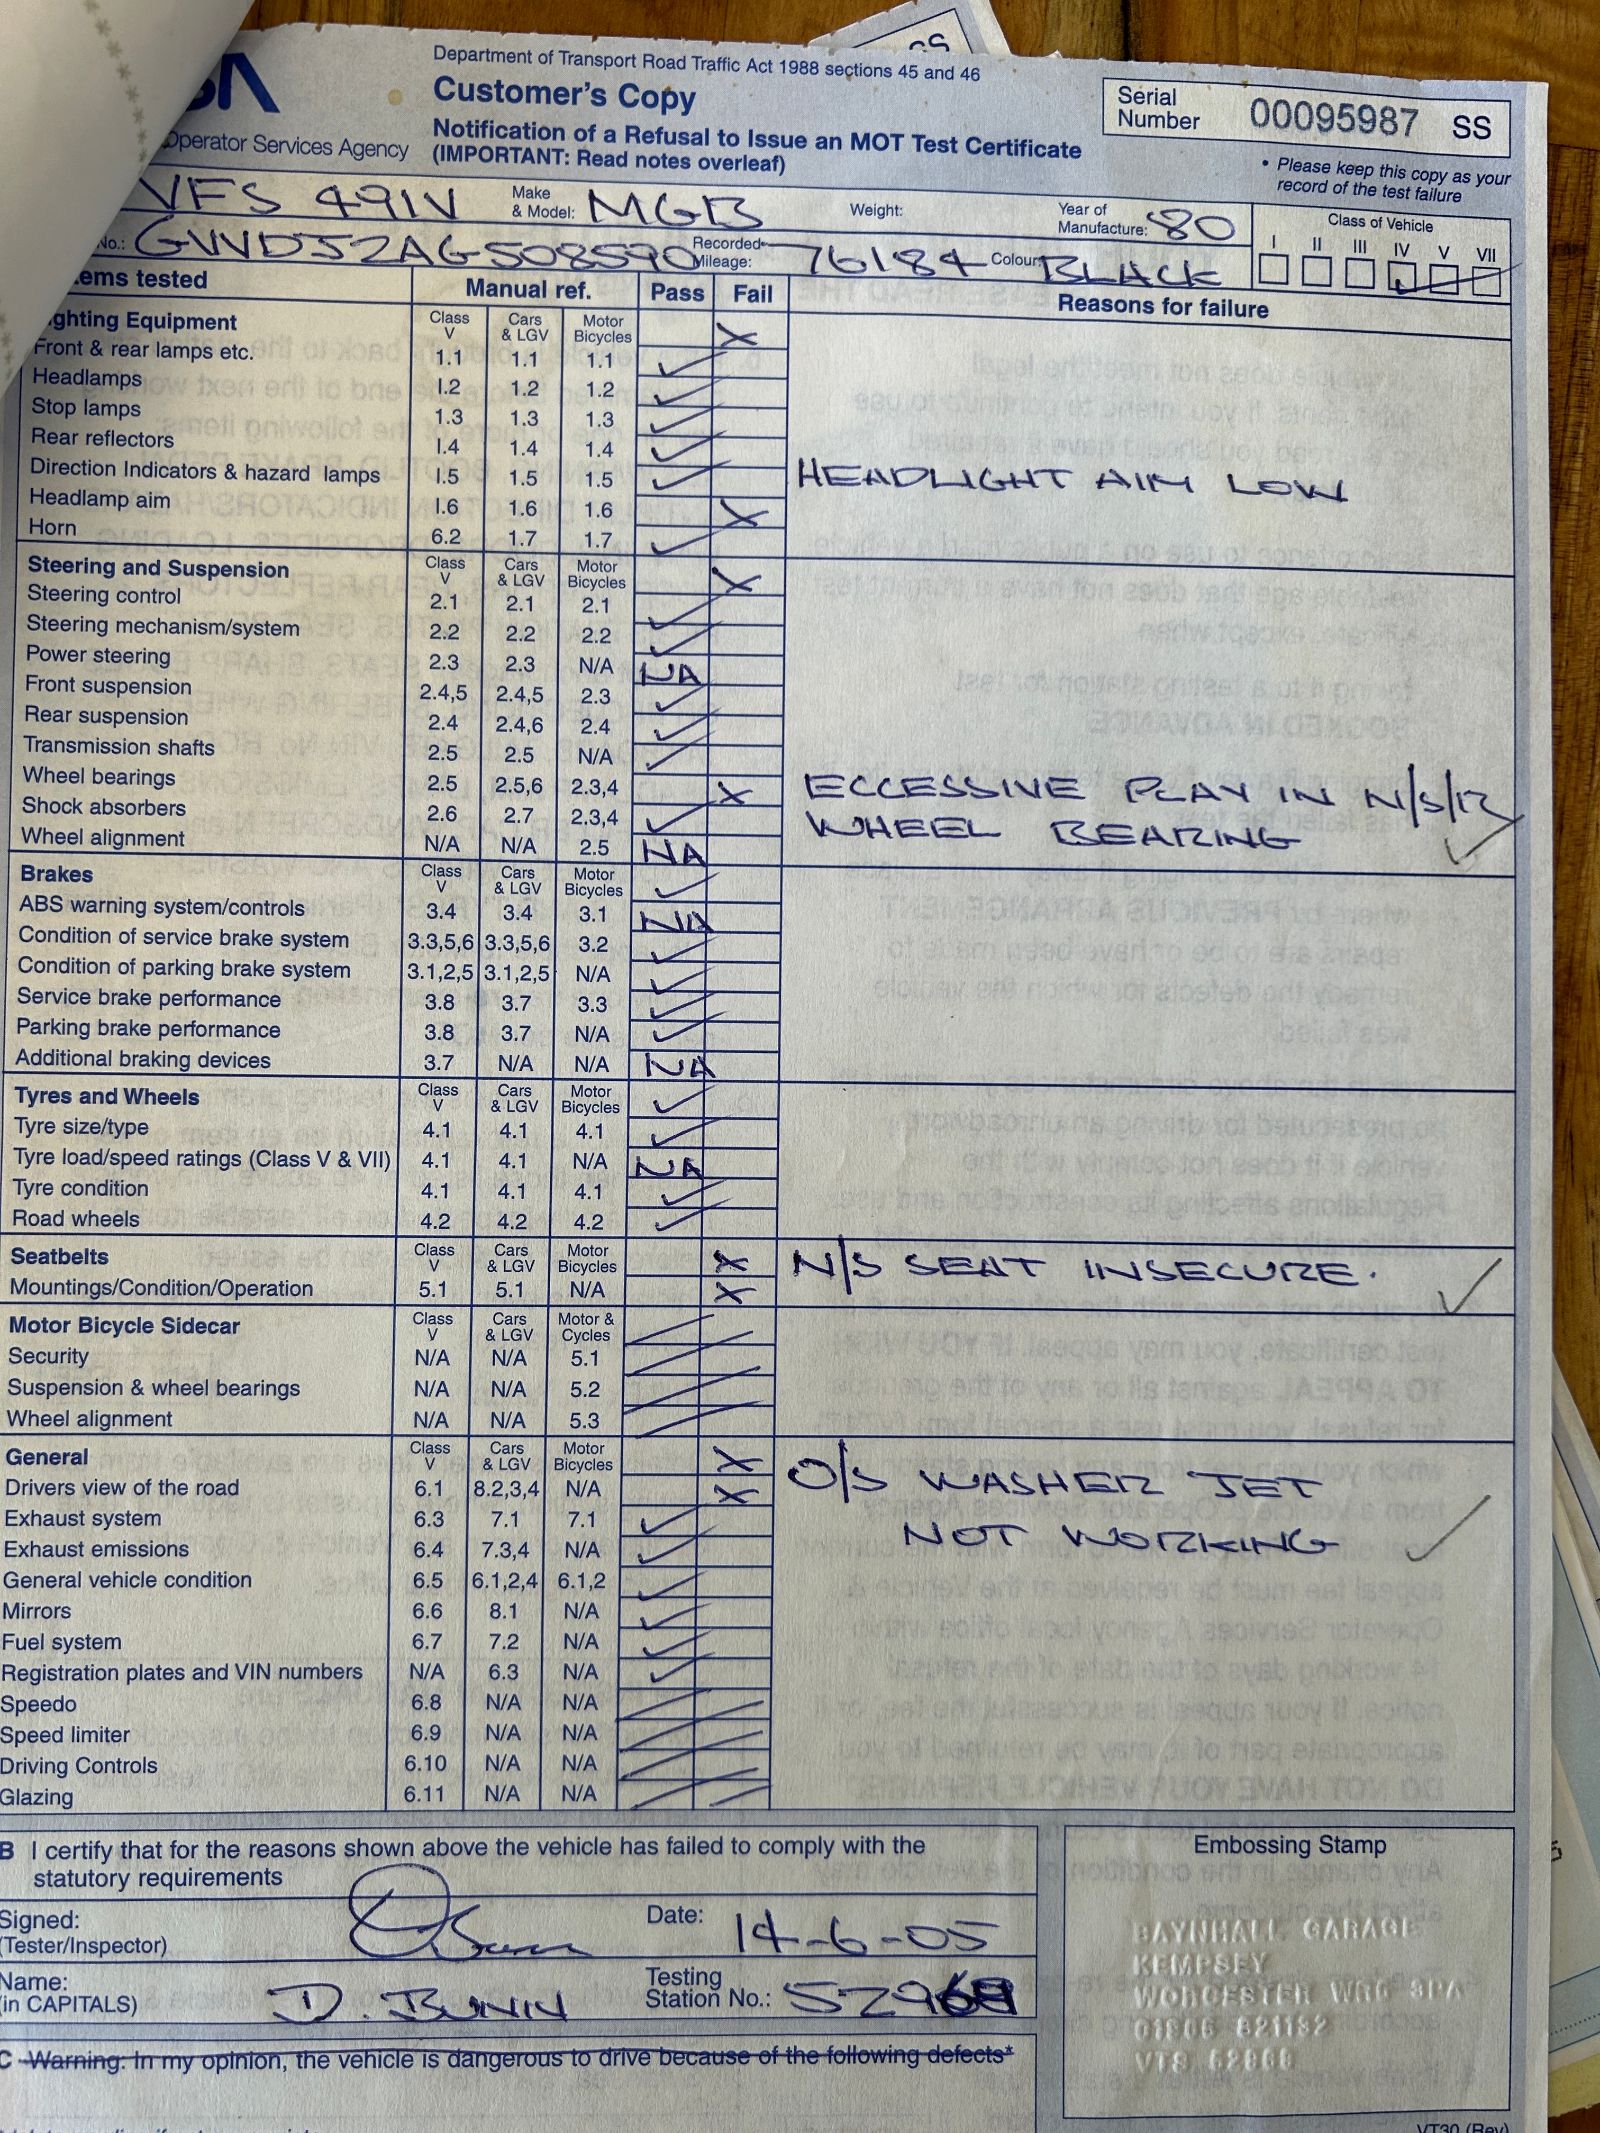 Department of Transport Road Traffic Act 1988 sections 45 and 46
Customer's Copy
Notification of a Refusal to Issue an MOT Test Certificate
(IMPORTANT: Read notes overleaf)
Operator Services Agency
Serial Number 00095987 SS
• Please keep this copy as your record of the test failure
VFS 491V Make & Model: MGB Weight: Year of Manufacture: 80
No.: GVVDJ2AG508590 Recorded Mileage: 76184 Colour: BLACK
Class of Vehicle
I II III IV V VII
ems tested Manual ref. Pass Fail Reasons for failure
ghting Equipment Class V Cars & LGV Motor Bicycles X
Front & rear lamps etc. 1.1 1.1 1.1 ✓
Headlamps 1.2 1.2 1.2 ✓
Stop lamps 1.3 1.3 1.3 ✓
Rear reflectors 1.4 1.4 1.4 ✓
Direction Indicators & hazard lamps 1.5 1.5 1.5 ✓ HEADLIGHT AIM LOW
Headlamp aim 1.6 1.6 1.6 X
Horn 6.2 1.7 1.7 ✓
Steering and Suspension Class V Cars & LGV Motor Bicycles X
Steering control 2.1 2.1 2.1 ✓
Steering mechanism/system 2.2 2.2 2.2 ✓
Power steering 2.3 2.3 N/A NA
Front suspension 2.4,5 2.4,5 2.3 ✓
Rear suspension 2.4 2.4,6 2.4 ✓
Transmission shafts 2.5 2.5 N/A ✓
Wheel bearings 2.5 2.5,6 2.3,4 X ECCESSIVE PLAY IN N/S/R
Shock absorbers 2.6 2.7 2.3,4 ✓ WHEEL BEARING ✓
Wheel alignment N/A N/A 2.5 NA
Brakes Class V Cars & LGV Motor Bicycles ✓
ABS warning system/controls 3.4 3.4 3.1 NA
Condition of service brake system 3.3,5,6 3.3,5,6 3.2 ✓
Condition of parking brake system 3.1,2,5 3.1,2,5 N/A ✓
Service brake performance 3.8 3.7 3.3 ✓
Parking brake performance 3.8 3.7 N/A ✓
Additional braking devices 3.7 N/A N/A NA
Tyres and Wheels Class V Cars & LGV Motor Bicycles ✓
Tyre size/type 4.1 4.1 4.1 ✓
Tyre load/speed ratings (Class V & VII) 4.1 4.1 N/A NA
Tyre condition 4.1 4.1 4.1 ✓
Road wheels 4.2 4.2 4.2 ✓
Seatbelts Class V Cars & LGV Motor Bicycles X N/S SEAT INSECURE. ✓
Mountings/Condition/Operation 5.1 5.1 N/A X
Motor Bicycle Sidecar Class V Cars & LGV Motor & Cycles
Security N/A N/A 5.1
Suspension & wheel bearings N/A N/A 5.2
Wheel alignment N/A N/A 5.3
General Class V Cars & LGV Motor Bicycles X O/S WASHER JET
Drivers view of the road 6.1 8.2,3,4 N/A X
Exhaust system 6.3 7.1 7.1 ✓ NOT WORKING ✓
Exhaust emissions 6.4 7.3,4 N/A ✓
General vehicle condition 6.5 6.1,2,4 6.1,2 ✓
Mirrors 6.6 8.1 N/A ✓
Fuel system 6.7 7.2 N/A ✓
Registration plates and VIN numbers N/A 6.3 N/A ✓
Speedo 6.8 N/A N/A
Speed limiter 6.9 N/A N/A
Driving Controls 6.10 N/A N/A
Glazing 6.11 N/A N/A
B I certify that for the reasons shown above the vehicle has failed to comply with the
statutory requirements
Signed: (Tester/Inspector) Date: 14-6-05
Name: (in CAPITALS) D. BUNN Testing Station No.: 52968
C Warning: In my opinion, the vehicle is dangerous to drive because of the following defects*
Embossing Stamp
BAYNHALL GARAGE
KEMPSEY
WORCESTER WR5 3PA
01905 821132
VTS 52968
VT30 (Rev)